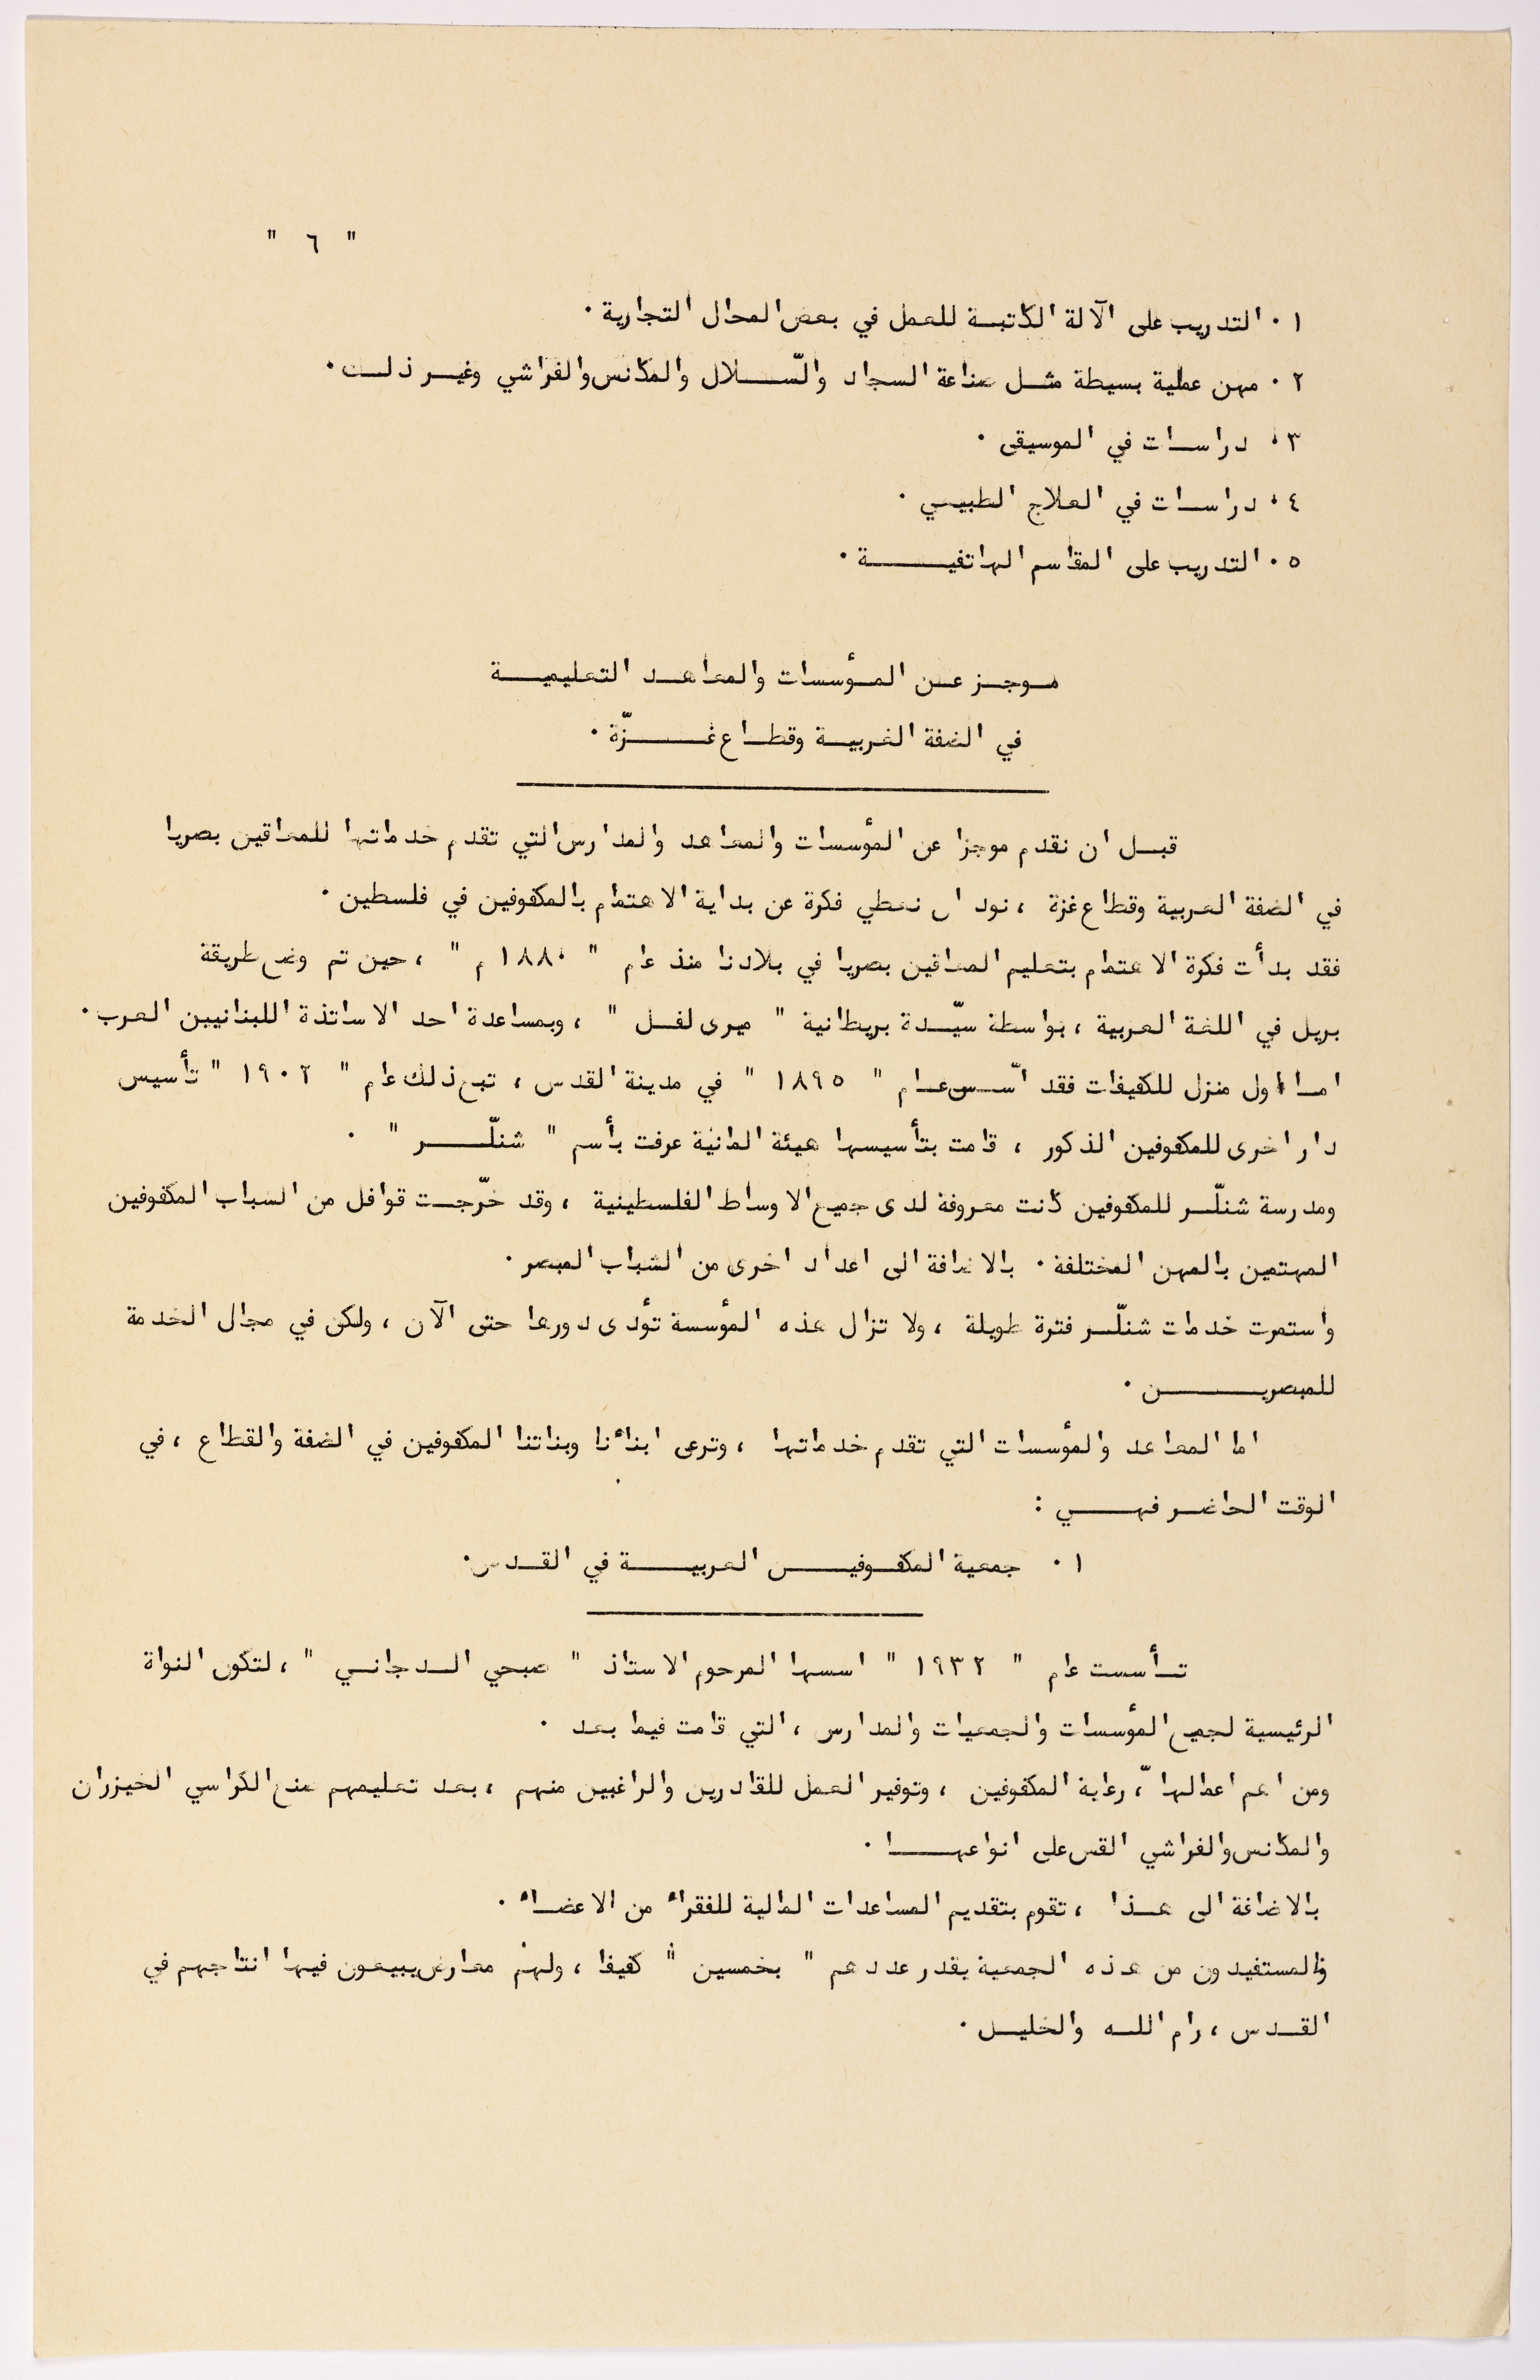 " ٦ "
١ . التدريب على الآلة الكاتبة للعمل في بعض المحال التجارية .
٢ . مهن عملية بسيطة مثل صناعة السجاد والسّلال والمكانس والفراشي وغير ذلك .
٣ . دراسات في الموسيقى .
٤ . دراسات في العلاج الطبيعي .
٥ . التدريب على المقاسم الهاتفية .
موجز عن المؤسسات والمعاهد التعليمية
في الضفة الغربية وقطاع غزّة .
قبل ان نقدم موجزا عن المؤسسات والمعاهد والمدارس التي تقدم خدماتها للمعاقين بصريا
في الضفة الغربية وقطاع غزة ، نود ان نعطي فكرة عن بداية الاهتمام بالمكفوفين في فلسطين .
فقد بدأت فكرة الاهتمام بتعليم المعاقين بصريا في بلادنا منذ عام " ١٨٨٠ م " ، حين تم وضع طريقة
بريل في اللغة العربية ، بواسطة سيّدة بريطانية " ميرى لفل " ، وبمساعدة احد الاساتذة اللبنانيين العرب .
اما اول منزل للكفيفات فقد اسّس عام " ١٨٩٥ " في مدينة القدس ، تبع ذلك عام " ١٩٠٢ " تأسيس
دار اخرى للمكفوفين الذكور ، قامت بتأسيسها هيئة المانية عرفت بأسم " شنلّر " .
ومدرسة شنلّر للمكفوفين كانت معروفة لدى جميع الاوساط الفلسطينية ، وقد خرّجت قوافل من الشباب المكفوفين
المهتمين بالمهن المختلفة . بالاضافة الى اعداد اخرى من الشباب المبصر .
واستمرت خدمات شنلّر فترة طويلة ، ولا تزال هذه المؤسسة تؤدى دورها حتى الآن ، ولكن في مجال الخدمة
للمبصرين .
اما المعاهد والمؤسسات التي تقدم خدماتها ، وترعى ابناءنا وبناتنا المكفوفين في الضفة والقطاع ، في
الوقت الحاضر فهي :
١ . جمعية المكفوفين العربية في القدس .
تأسست عام " ١٩٣٢ " اسسها المرحوم الاستاذ " صبحي الدجاني " ، لتكون النواة
الرئيسية لجميع المؤسسات والجمعيات والمدارس ، التي قامت فيما بعد .
ومن اهم اعمالها ، رعاية المكفوفين ، وتوفير العمل للقادرين والراغبين منهم ، بعد تعليمهم صنع الكراسي الخيزران
والمكانس والفراشي القش على انواعها .
بالاضافة الى هذا ، تقوم بتقديم المساعدات المالية للفقراء من الاعضاء .
والمستفيدون من هذه الجمعية يقدر عددهم " بخمسين " كفيفا ، ولهم معارض يبيعون فيها انتاجهم في
القدس ، رام الله والخليل .